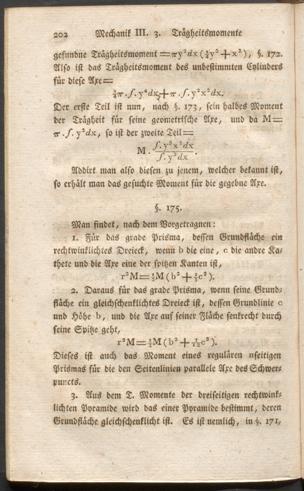 202 Mechanik III. 3. Trägheitsmomente
gefundne Trägheitsmoment = πy²dx(¼y² + x²), §. 172.
Also ist das Trägheitsmoment des unbestimmten Cylinders
für diese Axe =
¼π.∫.y⁴dx + π.∫.y²x²dx.
Der erste Teil ist nun, nach §. 173, sein halbes Moment
der Trägheit für seine geometrische Axe, und da M =
π.∫.y²dx, so ist der zweite Teil =
M. ∫.y²x²dx / ∫.y²dx.
Addirt man also diesen zu jenem, welcher bekannt ist,
so erhält man das gesuchte Moment für die gegebne Axe.
§. 175.
Man findet, nach dem Vorgetragnen:
1. Für das grade Prisma, dessen Grundfläche ein
rechtwinklichtes Dreieck, wenn b die eine, c die andre Ka-
thete und die Axe eine der spitzen Kanten ist,
r²M = ½M(b² + ⅓c²).
2. Daraus für das grade Prisma, wenn seine Grund-
fläche ein gleichschenklichtes Dreieck ist, dessen Grundlinie c
und Höhe b, und die Axe auf seiner Fläche senkrecht durch
seine Spitze geht,
r²M = ½M(b² + 1/12 c²).
Dieses ist auch das Moment eines regulären nseitigen
Prismas für die den Seitenlinien parallele Axe des Schwer-
puncts.
3. Aus dem T. Momente der dreiseitigen rechtwink-
lichten Pyramide wird das einer Pyramide bestimmt, deren
Grundfläche gleichschenklicht ist. Es ist nemlich, in §. 171,